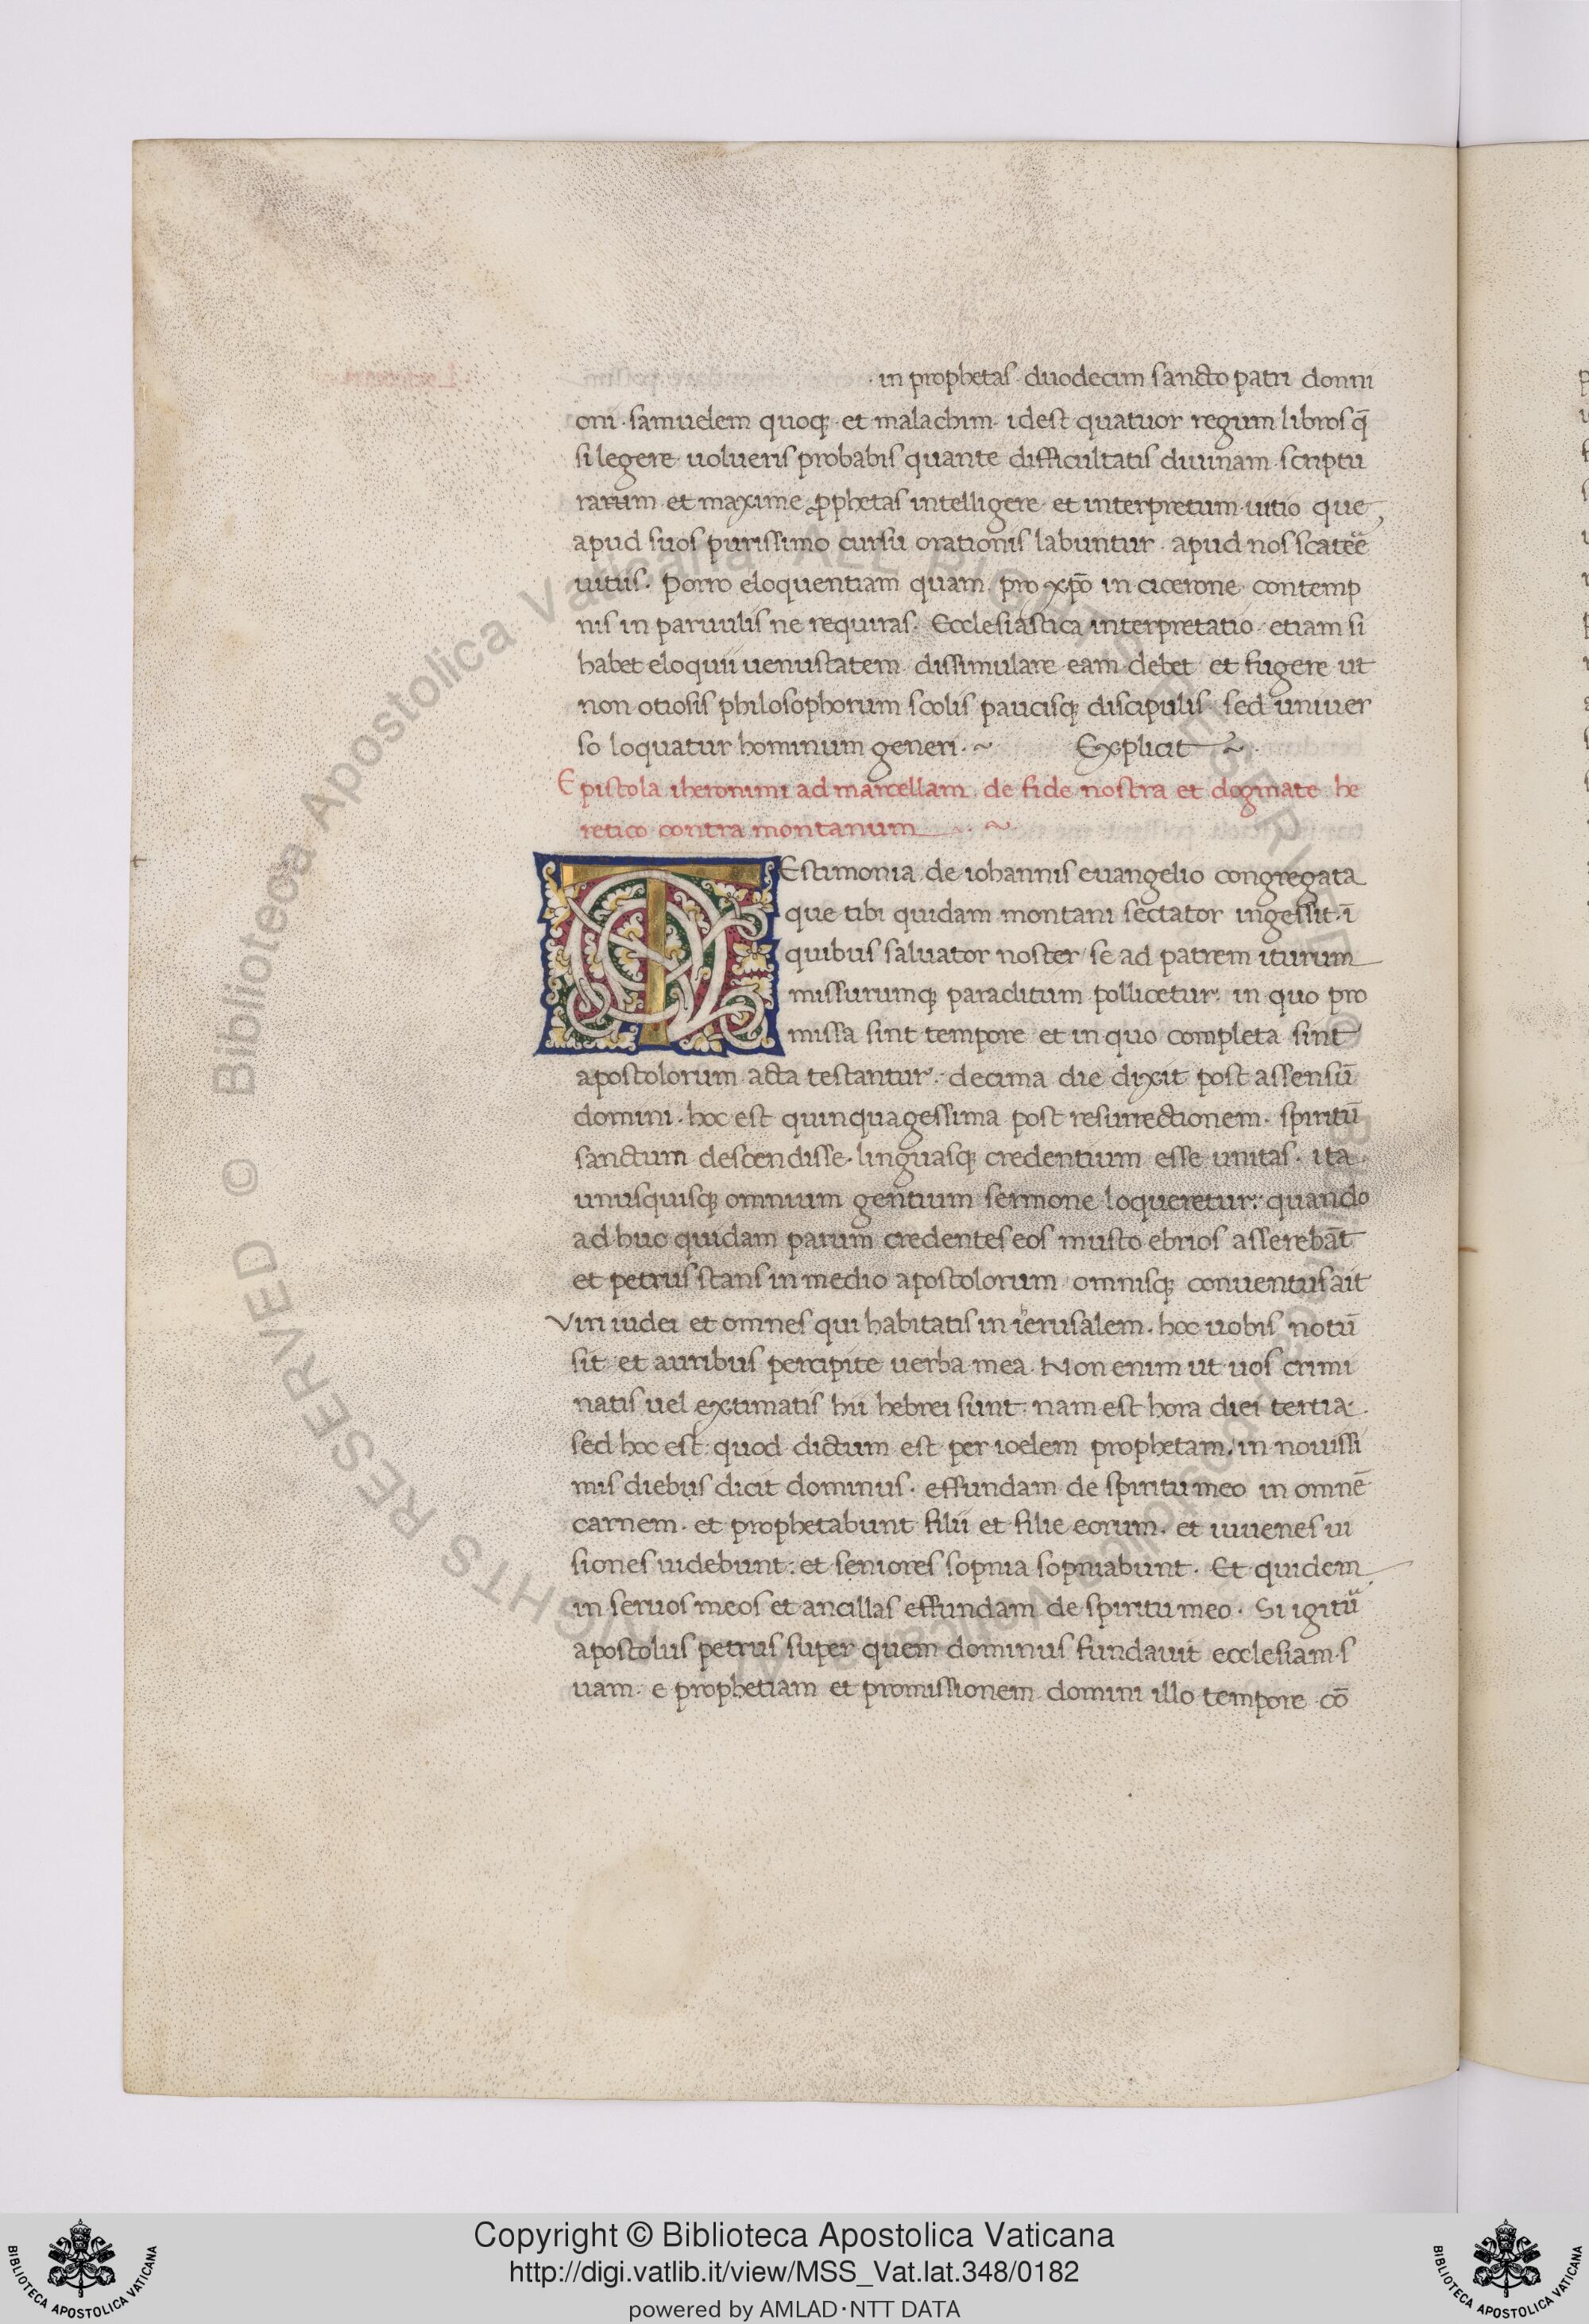 · in prophetas · duodecim sancto patri donni
oni · samuelem quoqꝫ · et malachim · idest quatuor regum libros q̄
si legere uolueris probabis quante difficultatis diuinam scriptu
rarum et maxime ꝓphetas intelligere · et interpretum uitio que
apud suos purissimo cursu orationis labuntur · apud nos scateē
uitiis · Porro eloquentiam quam pro xp̄o in cicerone contemp
nis in paruulis ne requiras · Ecclesiastica interpretatio · etiam si
habet eloquii uenustatem dissimulare eam debet et fugere ut
non otiosis philosophorum scolis paucisqꝫ discipulis sed uniuer
so loquatur hominum generi · ~ Explicit ~ ·
Epistola iheronimi ad marcellam de fide nostra et dogmate he
retico contra montanum ~
TEstimonia de iohannis euangelio congregata
que tibi quidam montani sectator ingessit · ī
quibus saluator noster se ad patrem iturum
missurumqꝫ paraclitum pollicetur · in quo pro
missa sint tempore et in quo completa sint
apostolorum acta testantur · decima die dixit post assensū
domini · hoc est quinquagessima post resurrectionem · spiritū
sanctum descendisse · linguasqꝫ credentium esse unitas · ita ·
unusquisqꝫ omnium gentium sermone loqueretur : quando
ad huc quidam parum credentes eos musto ebrios asserebāt
et petrus stans in medio apostolorum omnisqꝫ conuentus ait
Viri iudei et omnes qui habitatis in ierusalem · hoc uobis notū
sit et auribus percipite uerba mea · Non enim ut uos crimi
natis uel extimatis hii hebrei sunt : nam est hora diei tertia ·
sed hoc est : quod dictum est per ioelem prophetam · in nouissi
mis diebus dicit dominus · effundam de spiritu meo in omnē
carnem · et prophetabunt filii et filie eorum · et iuuenes ui
siones uidebunt : et seniores sopnia sopniabunt · Et quidem
in seruos meos et ancillas effundam de spiritu meo · Si igitū
apostolus petrus super quem dominus fundauit ecclesiam · s
uam · e prophetiam et promissionem domini illo tempore cō
© Biblioteca Apostolica Vaticana ALL RIGHTS RESERVED
Copyright © Biblioteca Apostolica Vaticana
http://digi.vatlib.it/view/MSS_Vat.lat.348/0182
powered by AMLAD·NTT DATA
BIBLIOTECA APOSTOLICA VATICANA
BIBLIOTECA APOSTOLICA VATICANA